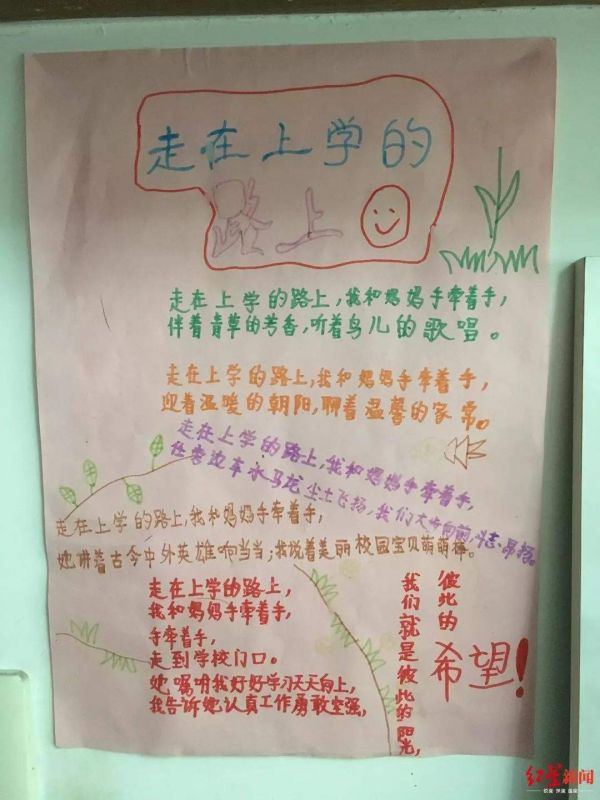 走在上学的
路上
走在上学的路上,我和妈妈手牵着手,
伴着青草的芳香,听着鸟儿的歌唱。
走在上学的路上,我和妈妈手牵着手,
迎着温暖的朝阳,聊着温馨的家常。
走在上学的路上,我和妈妈手牵着手,
任旁边车水马龙尘土飞扬,我们大步向前,斗志昂扬。
走在上学的路上,我和妈妈手牵着手,
她讲着古今中外英雄响当当;我说着美丽校园宝贝萌萌棒。
走在上学的路上,
我和妈妈手牵着手,
手牵着手,
走到学校门口。
她嘱咐我好好学习天天向上,
我告诉她认真工作勇敢坚强,
我们就是彼此的阳光,
彼此的
希望!
红星新闻